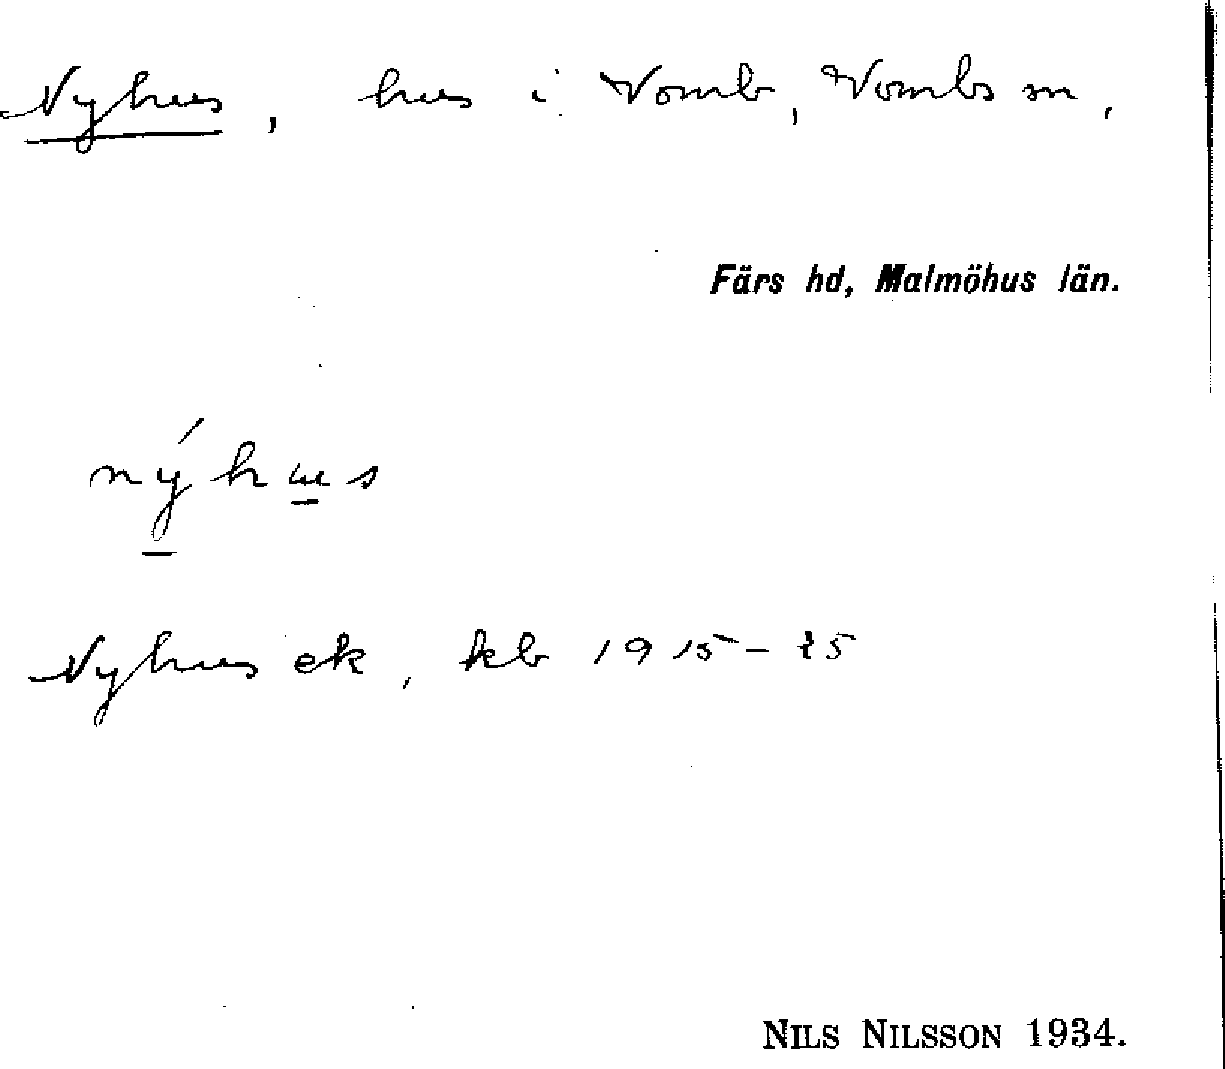 Nyhus, hus i Vomb, Vombs sn,
Färs hd, Malmöhus län.
nýhus
Nyhus ek, kb 1915-25
NILS NILSSON 1934.